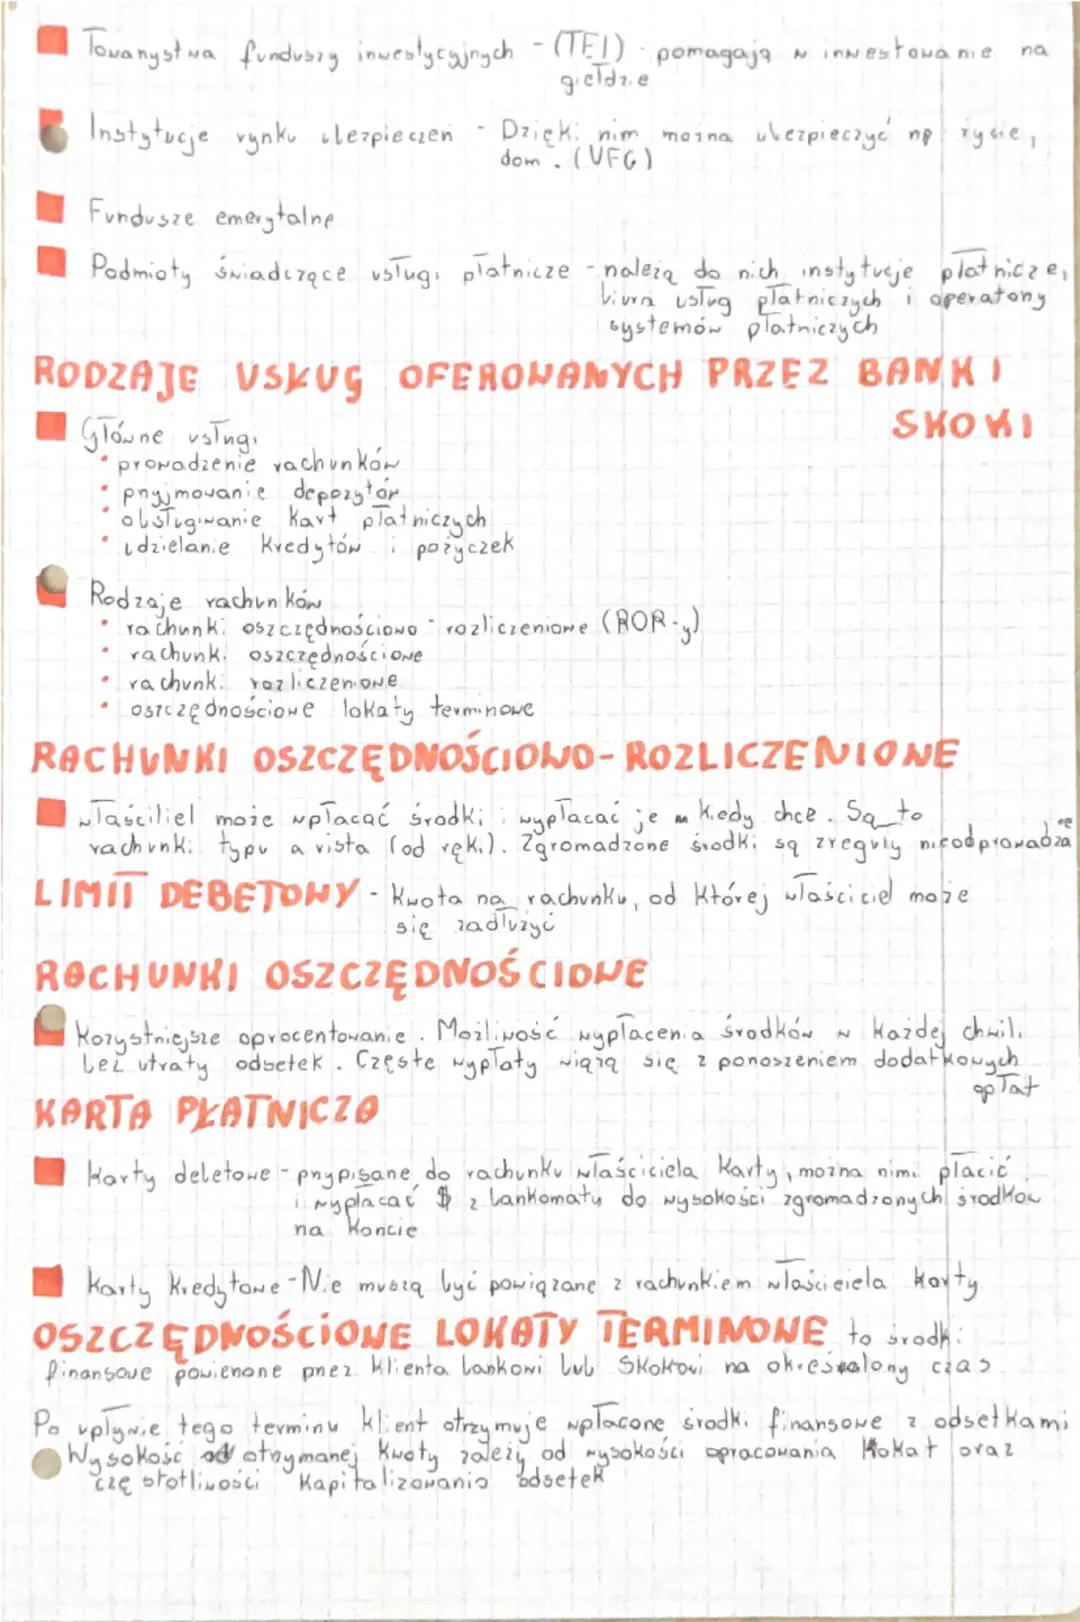 Towarzystwa funduszy inwestycyjnych - (TFI) - pomagają w inwestowanie na
giełdzie
Instytucje rynku ubezpieczeń - Dzięki nim można ubezpieczyć np życie,
dom. (UFG)
Fundusze emerytalne
Podmioty świadczące usługi płatnicze - należą do nich instytucje płatnicze,
biura usług płatniczych i operatorzy
systemów płatniczych
RODZAJE USŁUG OFEROWANYCH PRZEZ BANKI
SKOKI
Główne usługi
• prowadzenie rachunków
• przyjmowanie depozytów
• obsługiwanie kart płatniczych
• udzielanie kredytów i pożyczek
Rodzaje rachunków
• rachunki oszczędnościowo - rozliczeniowe (ROR-y)
• rachunki oszczędnościowe
• rachunki rozliczeniowe
• oszczędnościowe lokaty terminowe
RACHUNKI OSZCZĘDNOŚCIOWO-ROZLICZENIOWE
właściliel może wpłacać środki i wypłacać je kiedy chce. Są to
rachunki typu a vista (od ręki). Zgromadzone środki są zreguły nieodprowadza
LIMIT DEBETOWY - Kwota na rachunku, od której właściciel może
się zadłużyć
RACHUNKI OSZCZĘDNOŚCIOWE
Korzystniejsze oprocentowanie. Możliwość wypłacenia środków w każdej chwili
bez utraty odsetek. Częste wypłaty wiążą się z ponoszeniem dodatkowych
opłat
KARTA PŁATNICZA
Karty debetowe - przypisane do rachunku właściciela karty, można nimi płacić
i wypłacać $ z bankomatu do wysokości zgromadzonych środków
na koncie
Karty kredytowe - Nie muszą być powiązane z rachunkiem właściciela karty
OSZCZĘDNOŚCIOWE LOKATY TERMINOWE to środki
finansowe powierzone przez klienta bankowi lub SKOKowi na określony czas
Po upływie tego terminu klient otrzymuje wpłacone środki finansowe z odsetkami
Wysokość otrzymanej kwoty zależy od wysokości opracowania lokat oraz
częstotliwości kapitalizowania odsetek